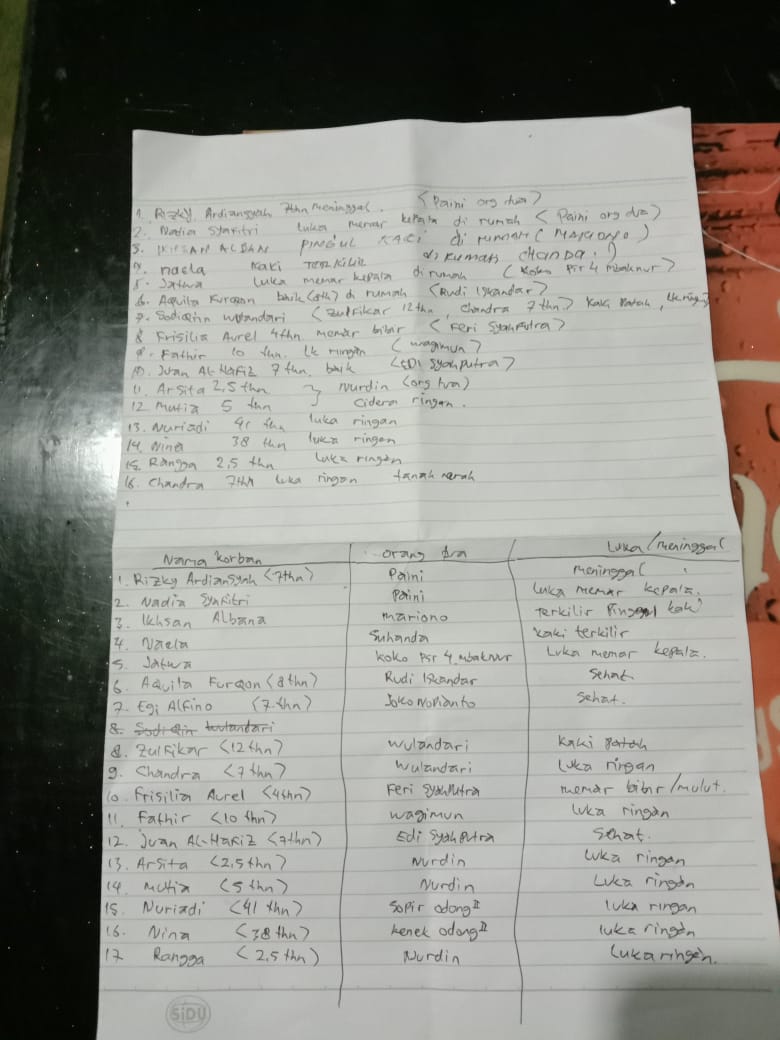 1. Rizky Ardiansyah 7thn meninggal. < Paini org tua >
2. Nadia Syafitri luka memar kepala di rumah < Paini org tua >
3. IKHSAN ALBAN PINGUL KAKI di rumah ( MARJONO )
4. naela Kaki TERKILIR di rumah CHANDA.)
5. Jatwa luka memar kepala di rumah ( Koko Psr 4 mbaknur >
6. Aquila Furqon baik (8th) di rumah (Rudi Iskandar)
7. Sodiqin wulandari < Zulfikar 12 thn, chandra 7 thn > Kaki Patah, lk ringan
8 Frisilia Aurel 4thn memar bibir < Feri SyahPutra >
9. Fathir 10 thn. lk ringan < wagimun >
10. Juan AL-HAFIZ 7 thn. baik < EDI SyahPutra >
11. Arsita 2,5 thn } Nurdin (org tua)
12 Mutia 5 thn Cidera ringan.
13. Nuriadi 41 thn luka ringan
14. Nina 38 thn luka ringan
15. Rangga 2,5 thn luka ringan
16. Chandra 7thn luka ringan tanah merah
Nama Korban orang tua Luka/meninggal
1. Rizky Ardiansyah <7thn> Paini meninggal
2. Nadia Syafitri Paini luka memar kepala.
3. Ikhsan Albana mariono Terkilir Pinggul kaki
4. Naela Suhanda kaki terkilir
5. Jatwa Koko Psr 4 mbaknur Luka memar kepala.
6. Aquila Furqon <8 thn> Rudi Iskandar Sehat
7. Egi Alfino <7 thn> Joko Nopianto Sehat.
8. Sodiqin wulandari
8. Zulfikar <12 thn> Wulandari Kaki patah
9. Chandra <7 thn> Wulandari Luka ringan
10. Frisilia Aurel <4thn> Feri SyahPutra memar bibir/mulut.
11. Fathir <10 thn> wagimun luka ringan
12. Juan AL-HAFIZ <7thn> Edi SyahPutra Sehat.
13. Arsita <2,5 thn> Nurdin Luka ringan
14. Mutia <5 thn> Nurdin Luka ringan
15. Nuriadi <41 thn> Sopir odong II luka ringan
16. Nina <38 thn> kenek odong II luka ringan
17. Rangga <2,5 thn> Nurdin Luka ringan.
SiDU